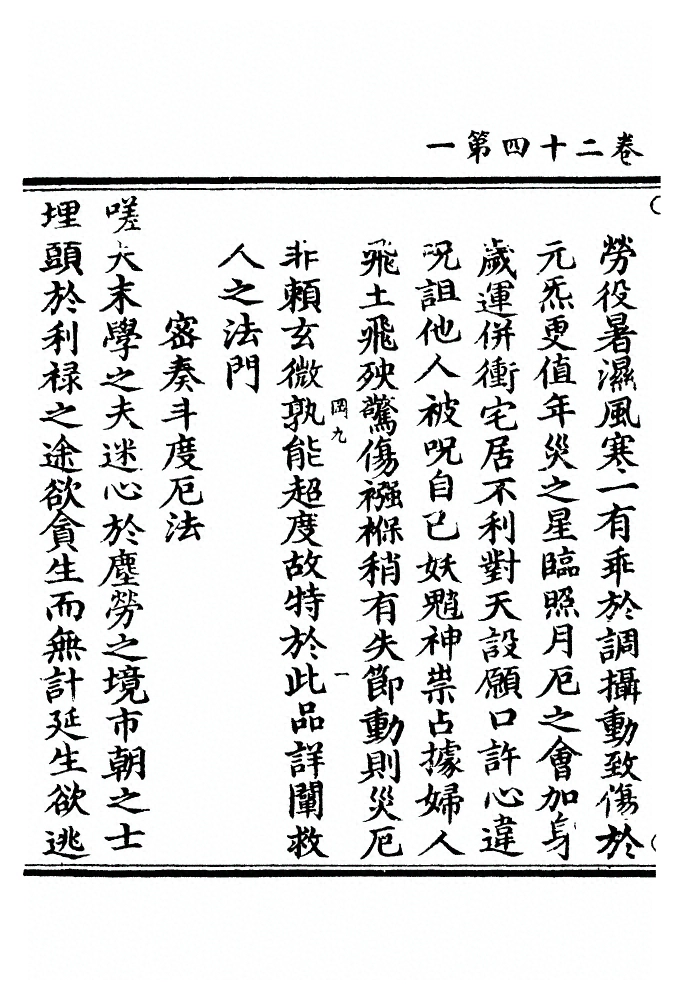 卷二十四第一
勞役暑濕風寒一有乖於調攝動致傷於
元炁更值年災之星臨照月厄之會加身
歲運併衝宅居不利對天設願口許心違
呪詛他人被呪自己妖魈神祟占據婦人
飛土飛殃驚傷襁褓稍有失節動則災厄
岡九
一
非賴玄微孰能超度故特於此品詳闡救
人之法門
密奏斗度厄法
嗟夫末學之夫迷心於塵勞之境市朝之士
埋頭於利祿之途欲貪生而無計延生欲逃